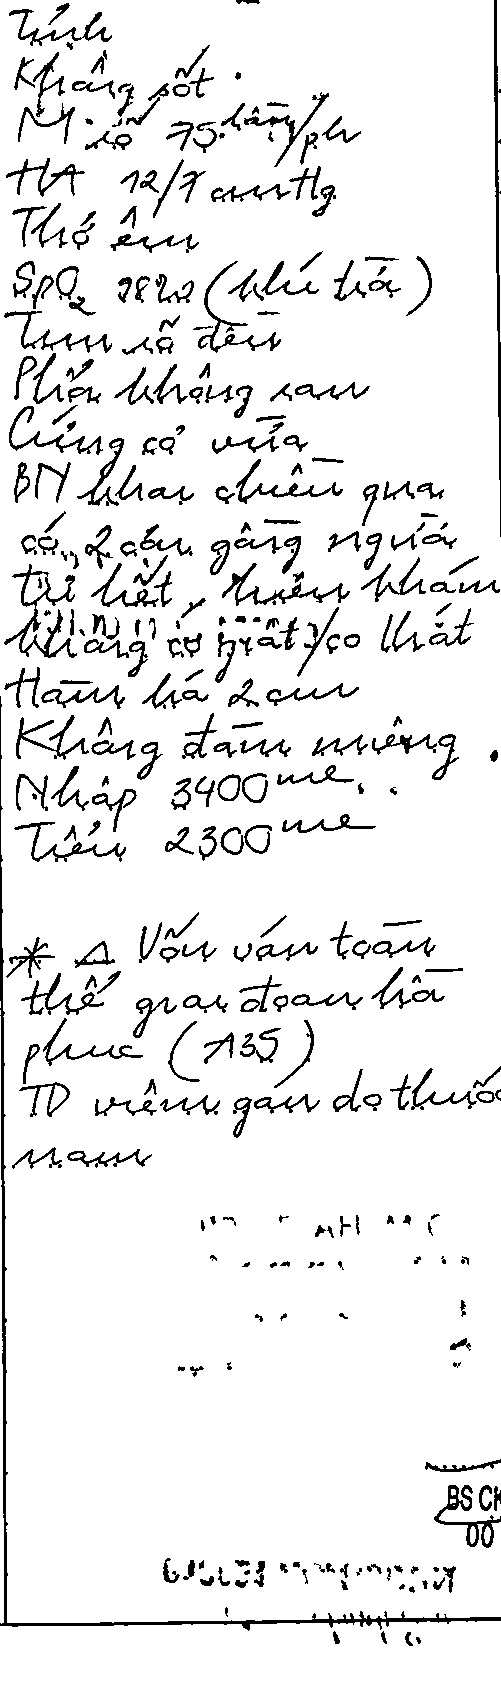 Tỉnh
Không sốt
M rõ 75 lần/ph
HA 12/7 cmHg
Thở êm
SpO2 98% (khí trời)
Tim rõ đều
Phổi không ran
Cứng cơ vừa
BN khai chiều qua
có 2 cơn gồng người
tự hết, hiện khám
không có giật/co thắt
Hàm há 2cm
Không đàm miệng.
Nhập 3400ml
Tiểu 2300ml
* Δ Uốn ván toàn
thể giai đoạn hồi
phục (A35)
TD viêm gan do thuốc
nam
BS CK
00